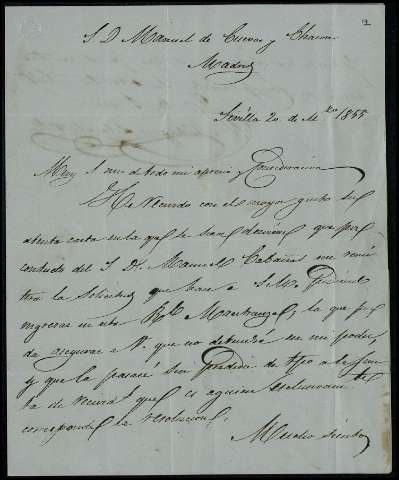 S. D. Manuel de Cuevas y Chacon
Madrid
Sevilla 20 de M.zo 1855
Muy S. mio de todo mi aprecio y Consideracion
He recivido con el mayor gusto su
atenta carta en la que se sirve decirme que por
conducto del S. D. Manuel Cabañas me remi
tira la Solicitud que hace a S. M.
ingresar en esta R.l Maestranza, la que pue
do asegurar a V. que no detendré en mi poder
y que la pasaré sin perdida de tpo a la Jun
ta de
corresponde la resolucion.
Mucho siento